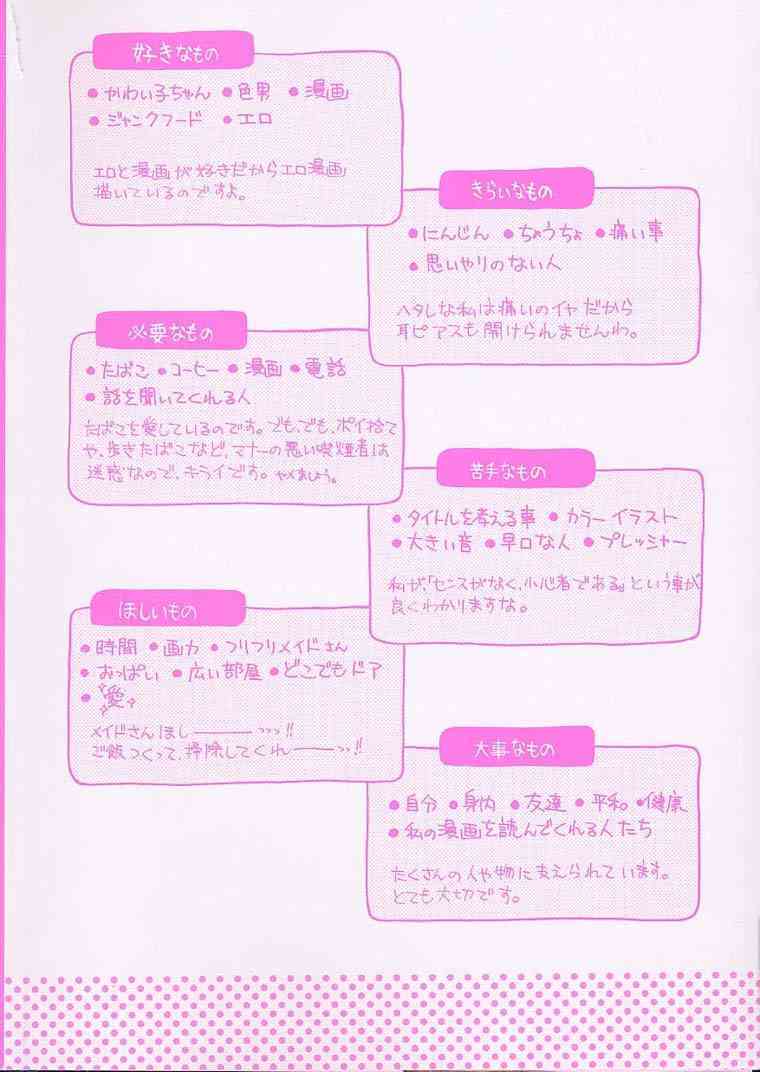 好きなもの
●かわい子ちゃん ●色男 ●漫画
●ジャンクフード ●エロ
エロと漫画が好きだからエロ漫画
描いているのですよ。
きらいなもの
●にんじん ●ちょうちょ ●痛い事
●思いやりのない人
ヘタレな私は痛いのイヤだから
耳ピアスも開けられませんわ。
必要なもの
●たばこ ●コーヒー ●漫画 ●電話
●話を聞いてくれる人
たばこを愛しているのです。でも、でも、ポイ捨て
や、歩きたばこなど、マナーの悪い喫煙者は
迷惑なので、キライです。やめましょう。
苦手なもの
●タイトルを考える事 ●カラーイラスト
●大きい音 ●早口な人 ●プレッシャー
私が、「センスがなく、小心者である」という事が
良くわかりますな。
ほしいもの
●時間 ●画力 ●フリフリメイドさん
●おっぱい ●広い部屋 ●どこでもドア
●愛
メイドさんほしーーーっっっ!!
ご飯つくって、掃除してくれーーーっっ!!
大事なもの
●自分 ●身内 ●友達 ●平和 ●健康
●私の漫画を読んでくれる人たち
たくさんの人や物に支えられています。
とても大切です。